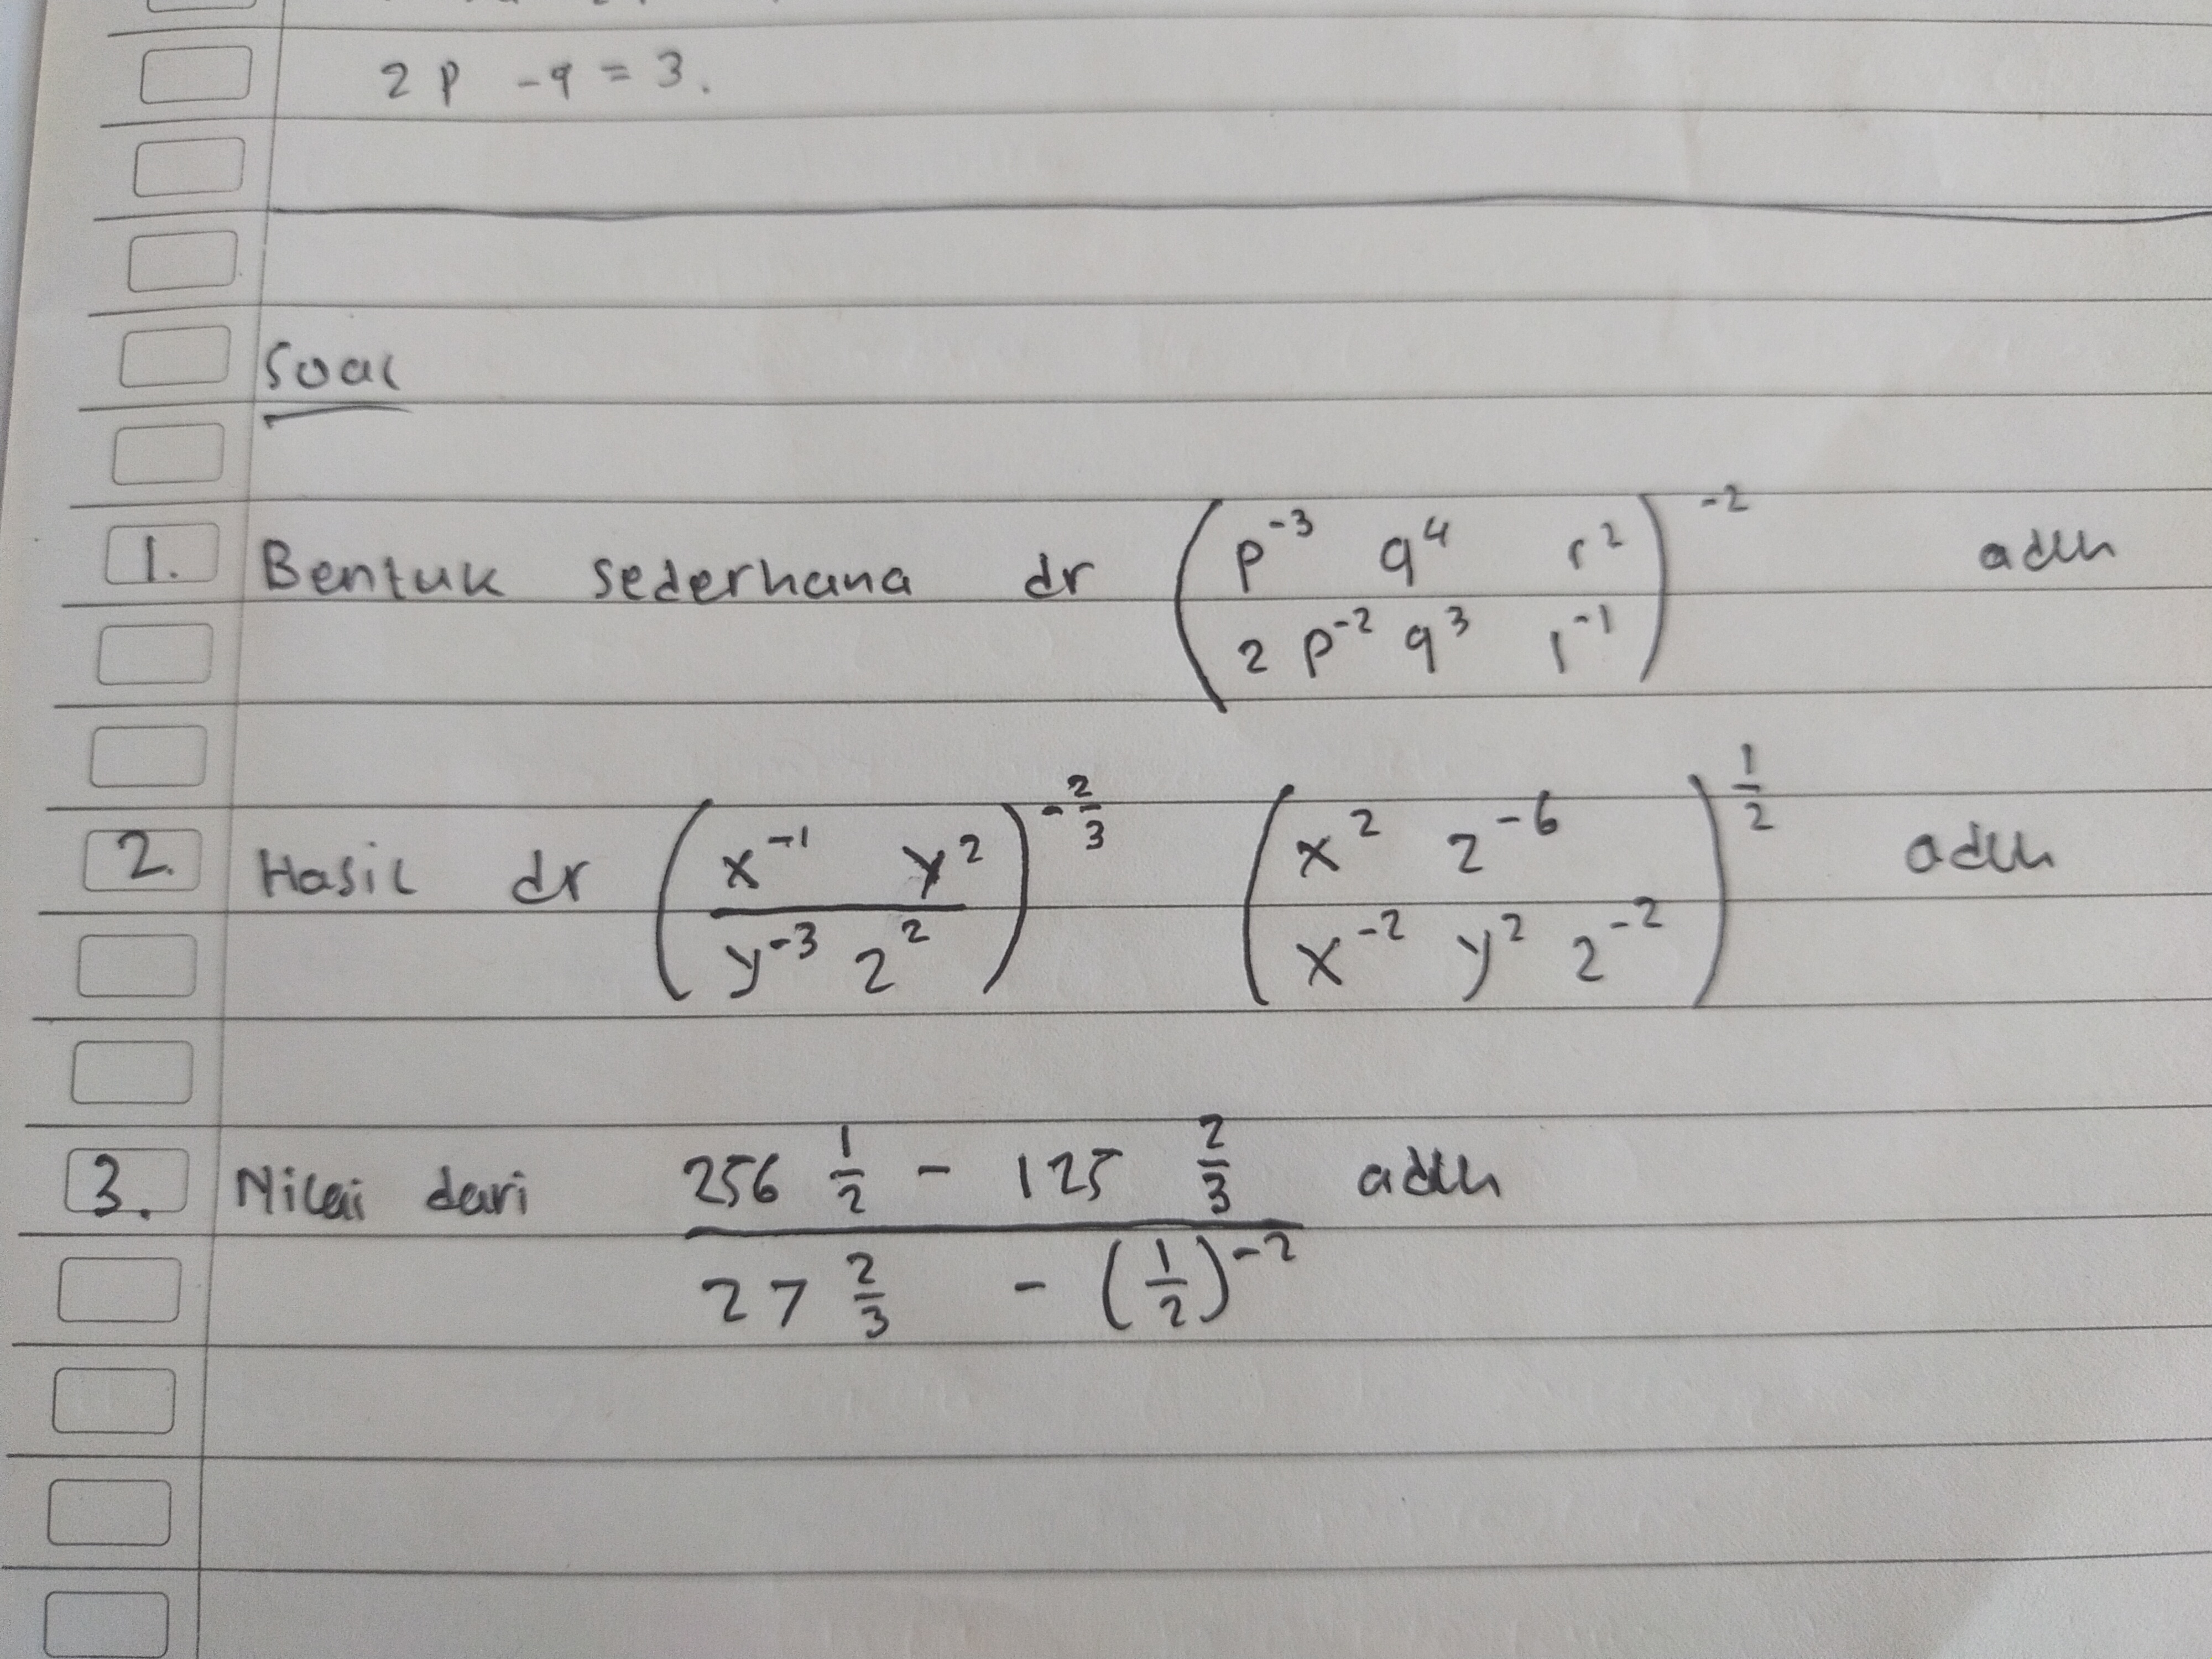 2p - q = 3.
Soal
1. Bentuk sederhana dr (p⁻³ q⁴ r² / 2 p⁻² q³ r⁻¹)⁻² adlh
2. Hasil dr (x⁻¹ y² / y⁻³ z²)^(-2/3) (x² z⁻⁶ / x⁻² y² z⁻²)^(1/2) adlh
3. Nilai dari (256^(1/2) - 125^(2/3)) / (27^(2/3) - (1/2)⁻²) adlh